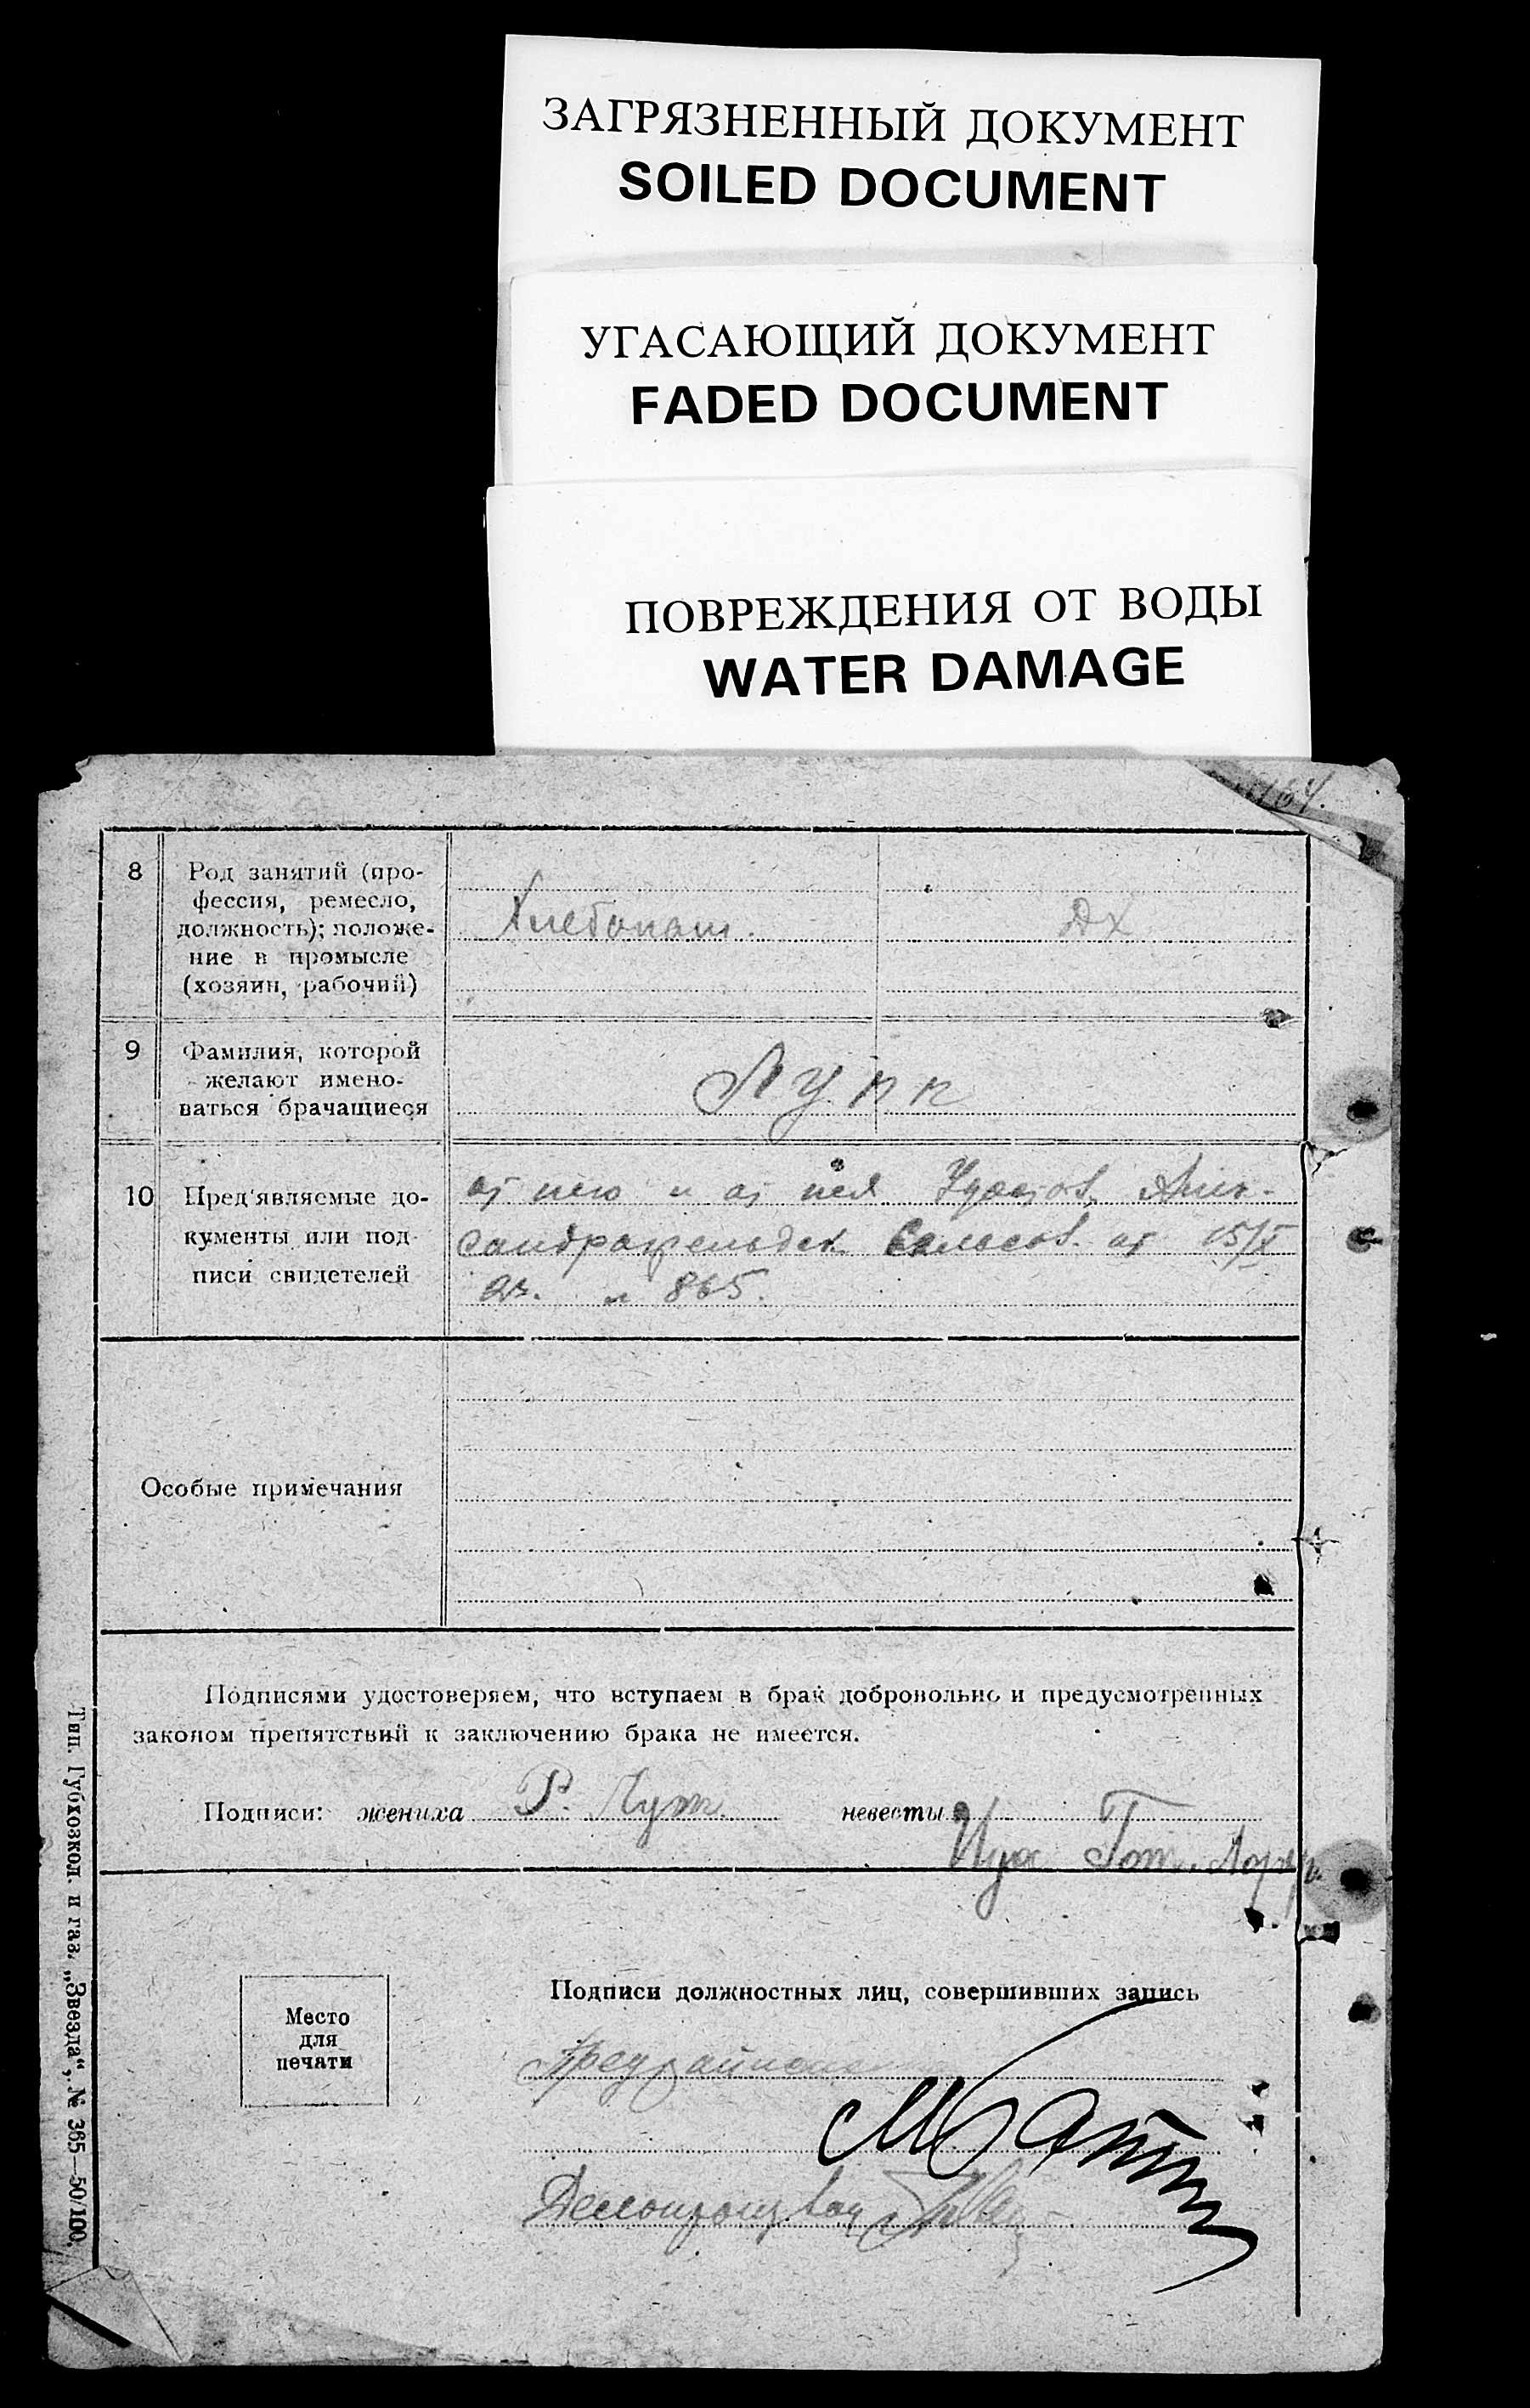 ЗАГРЯЗНЕННЫЙ ДОКУМЕНТ
SOILED DOCUMENT
УГАСАЮЩИЙ ДОКУМЕНТ
FADED DOCUMENT
ПОВРЕЖДЕНИЯ ОТ ВОДЫ
WATER DAMAGE
164.
8
Род занятий (про-
фессия, ремесло,
должность); положе-
ние в промысле
(хозяин, рабочий)
Хлебопаш.
ДХ
9
Фамилия, которой
желают имено-
ваться брачащиеся
Лупп
10
Пред'являемые до-
кументы или под
писи свидетелей
от него и от нея Удост. Алек-
сандрафельдск. Сельсов. от 15/X
2г. н 865.
Особые примечания
Подписями удостоверяем, что вступаем в брак добровольно и предусмотренных
законом препятствий к заключению брака не имеется.
Подписи: жениха Р. невесты
Ида Гот.
Подписи должностных лиц, совершивших запись
Место
для
печати
Делопроизвод
Тип. Губхозкол. и газ. „Звезда“, № 365—50/100.